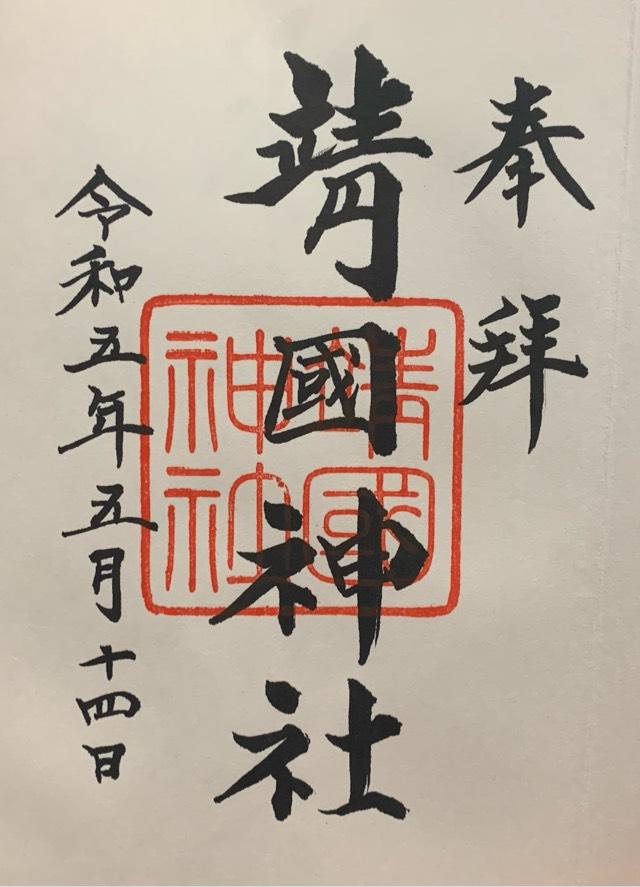 奉拝
靖國神社
靖國
神社
令和五年五月十四日